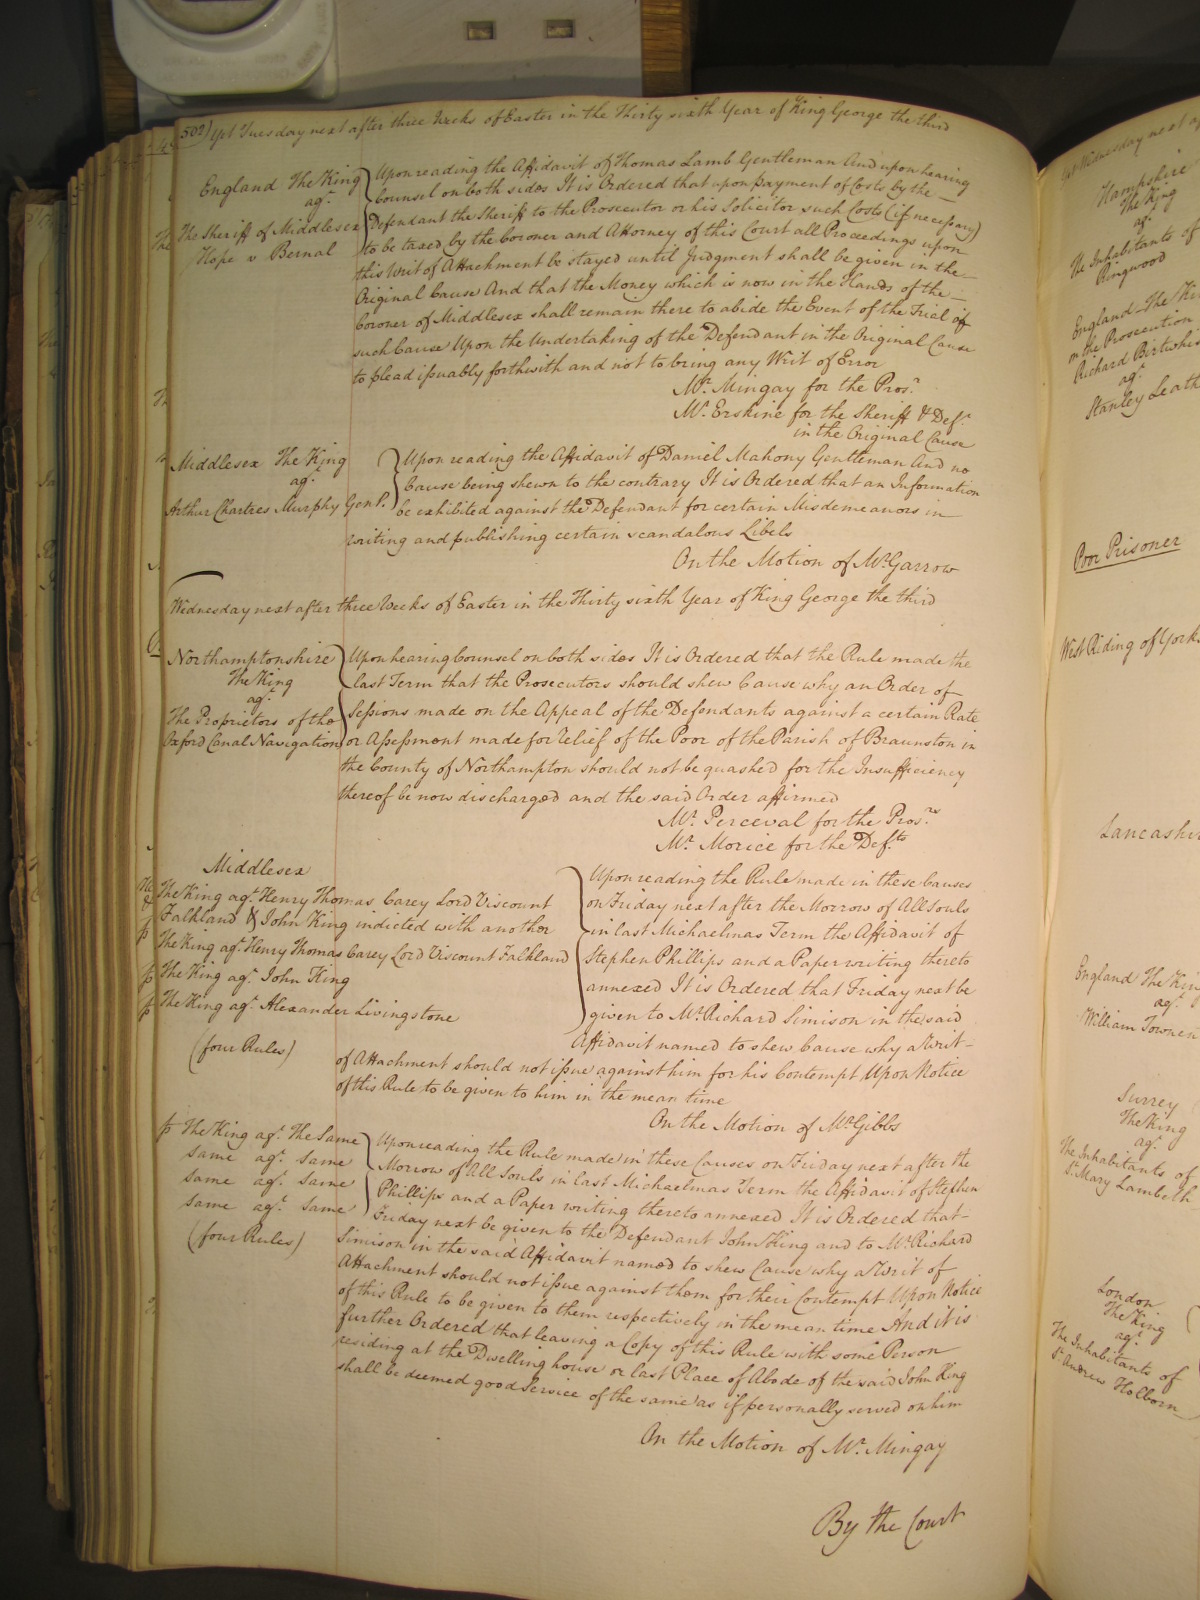 502) yet Tuesday next after three Weeks of Easter in the Thirty sixth Year of King George the third
England The King
agt.
The Sheriff of Middlesex
Hope v Bernal
Upon reading the Affidavit of Thomas Lamb Gentleman And upon hearing
Counsel on both sides It is Ordered that upon payment of Costs by the
Defendant the Sheriff to the Prosecutor or his Solicitor such Costs (if necessary)
to be taxed by the Coroner and Attorney of this Court all Proceedings upon
this Writ of Attachment be stayed until Judgment shall be given in the
Original Cause And that the Money which is now in the Hands of the
Coroner of Middlesex shall remain there to abide the Event of the Trial of
such Cause Upon the Undertaking of the Defendant in the Original Cause
to plead issuably forthwith and not to bring any Writ of Error
Mr. Mingay for the Pros.r
Mr. Erskine for the Sheriff & Def.t
in the Original Cause
Middlesex The King
agt.
Arthur Chartres Murphy Gent.
Upon reading the Affidavit of Daniel Mahony Gentleman And no
Cause being shewn to the contrary It is Ordered that an Information
be exhibited against the Defendant for certain Misdemeanors in
writing and publishing certain scandalous Libels
On the Motion of Mr. Garrow
Wednesday next after three Weeks of Easter in the Thirty sixth Year of King George the third
Northamptonshire
The King
agt.
The Proprietors of the
Oxford Canal Navigation
Upon hearing Counsel on both sides It is Ordered that the Rule made the
last Term that the Prosecutors should shew Cause why an Order of
Sessions made on the Appeal of the Defendants against a certain Rate
or Assessment made for relief of the Poor of the Parish of Braunston in
the County of Northampton should not be quashed for the Insufficiency
thereof be now discharged and the said Order affirmed
Mr. Perceval for the Pros.rs
Mr. Morice for the Def.ts
Middlesex
The King agt. Henry Thomas Carey Lord Viscount
Falkland & John King indicted with another
The King agt. Henry Thomas Carey Lord Viscount Falkland
The King agt. John King
The King agt. Alexander Livingstone
(four Rules)
Upon reading the Rule made in these Causes
on Friday next after the Morrow of All Souls
in last Michaelmas Term the Affidavit of
Stephen Phillips and a Paper writing thereto
annexed It is Ordered that Friday next be
given to Mr. Richard Simison in the said
Affidavit named to shew Cause why a Writ
of Attachment should not issue against him for his Contempt Upon Notice
of this Rule to be given to him in the mean time
On the Motion of Mr. Gibbs
The King agt. The Same
same agt. same
same agt. same
same agt. same
(four Rules)
Upon reading the Rule made in these Causes on Friday next after the
Morrow of All Souls in last Michaelmas Term the Affidavit of Stephen
Phillips and a Paper writing thereto annexed It is Ordered that
Friday next be given to the Defendant John King and to Mr. Richard
Simison in the said Affidavit named to shew Cause why a Writ of
Attachment should not issue against them for their Contempt Upon Notice
of this Rule to be given to them respectively in the mean time And it is
further Ordered that leaving a Copy of this Rule with some Person
residing at the Dwelling house or last Place of Abode of the said John King
shall be deemed good Service of the same as if personally served on him
On the Motion of Mr. Mingay
By the Court
Hampshire
The King
agt.
The Inhabitants of
Ringwood
England The
on the Prosecution
Richard
agt.
Stanley
Poor Prisoner
West Riding of
England The
agt.
William
Surrey
The King
agt.
The Inhabitants of
St. Mary Lambeth
London
The King
agt.
The Inhabitants of
St. Andrew Holborn